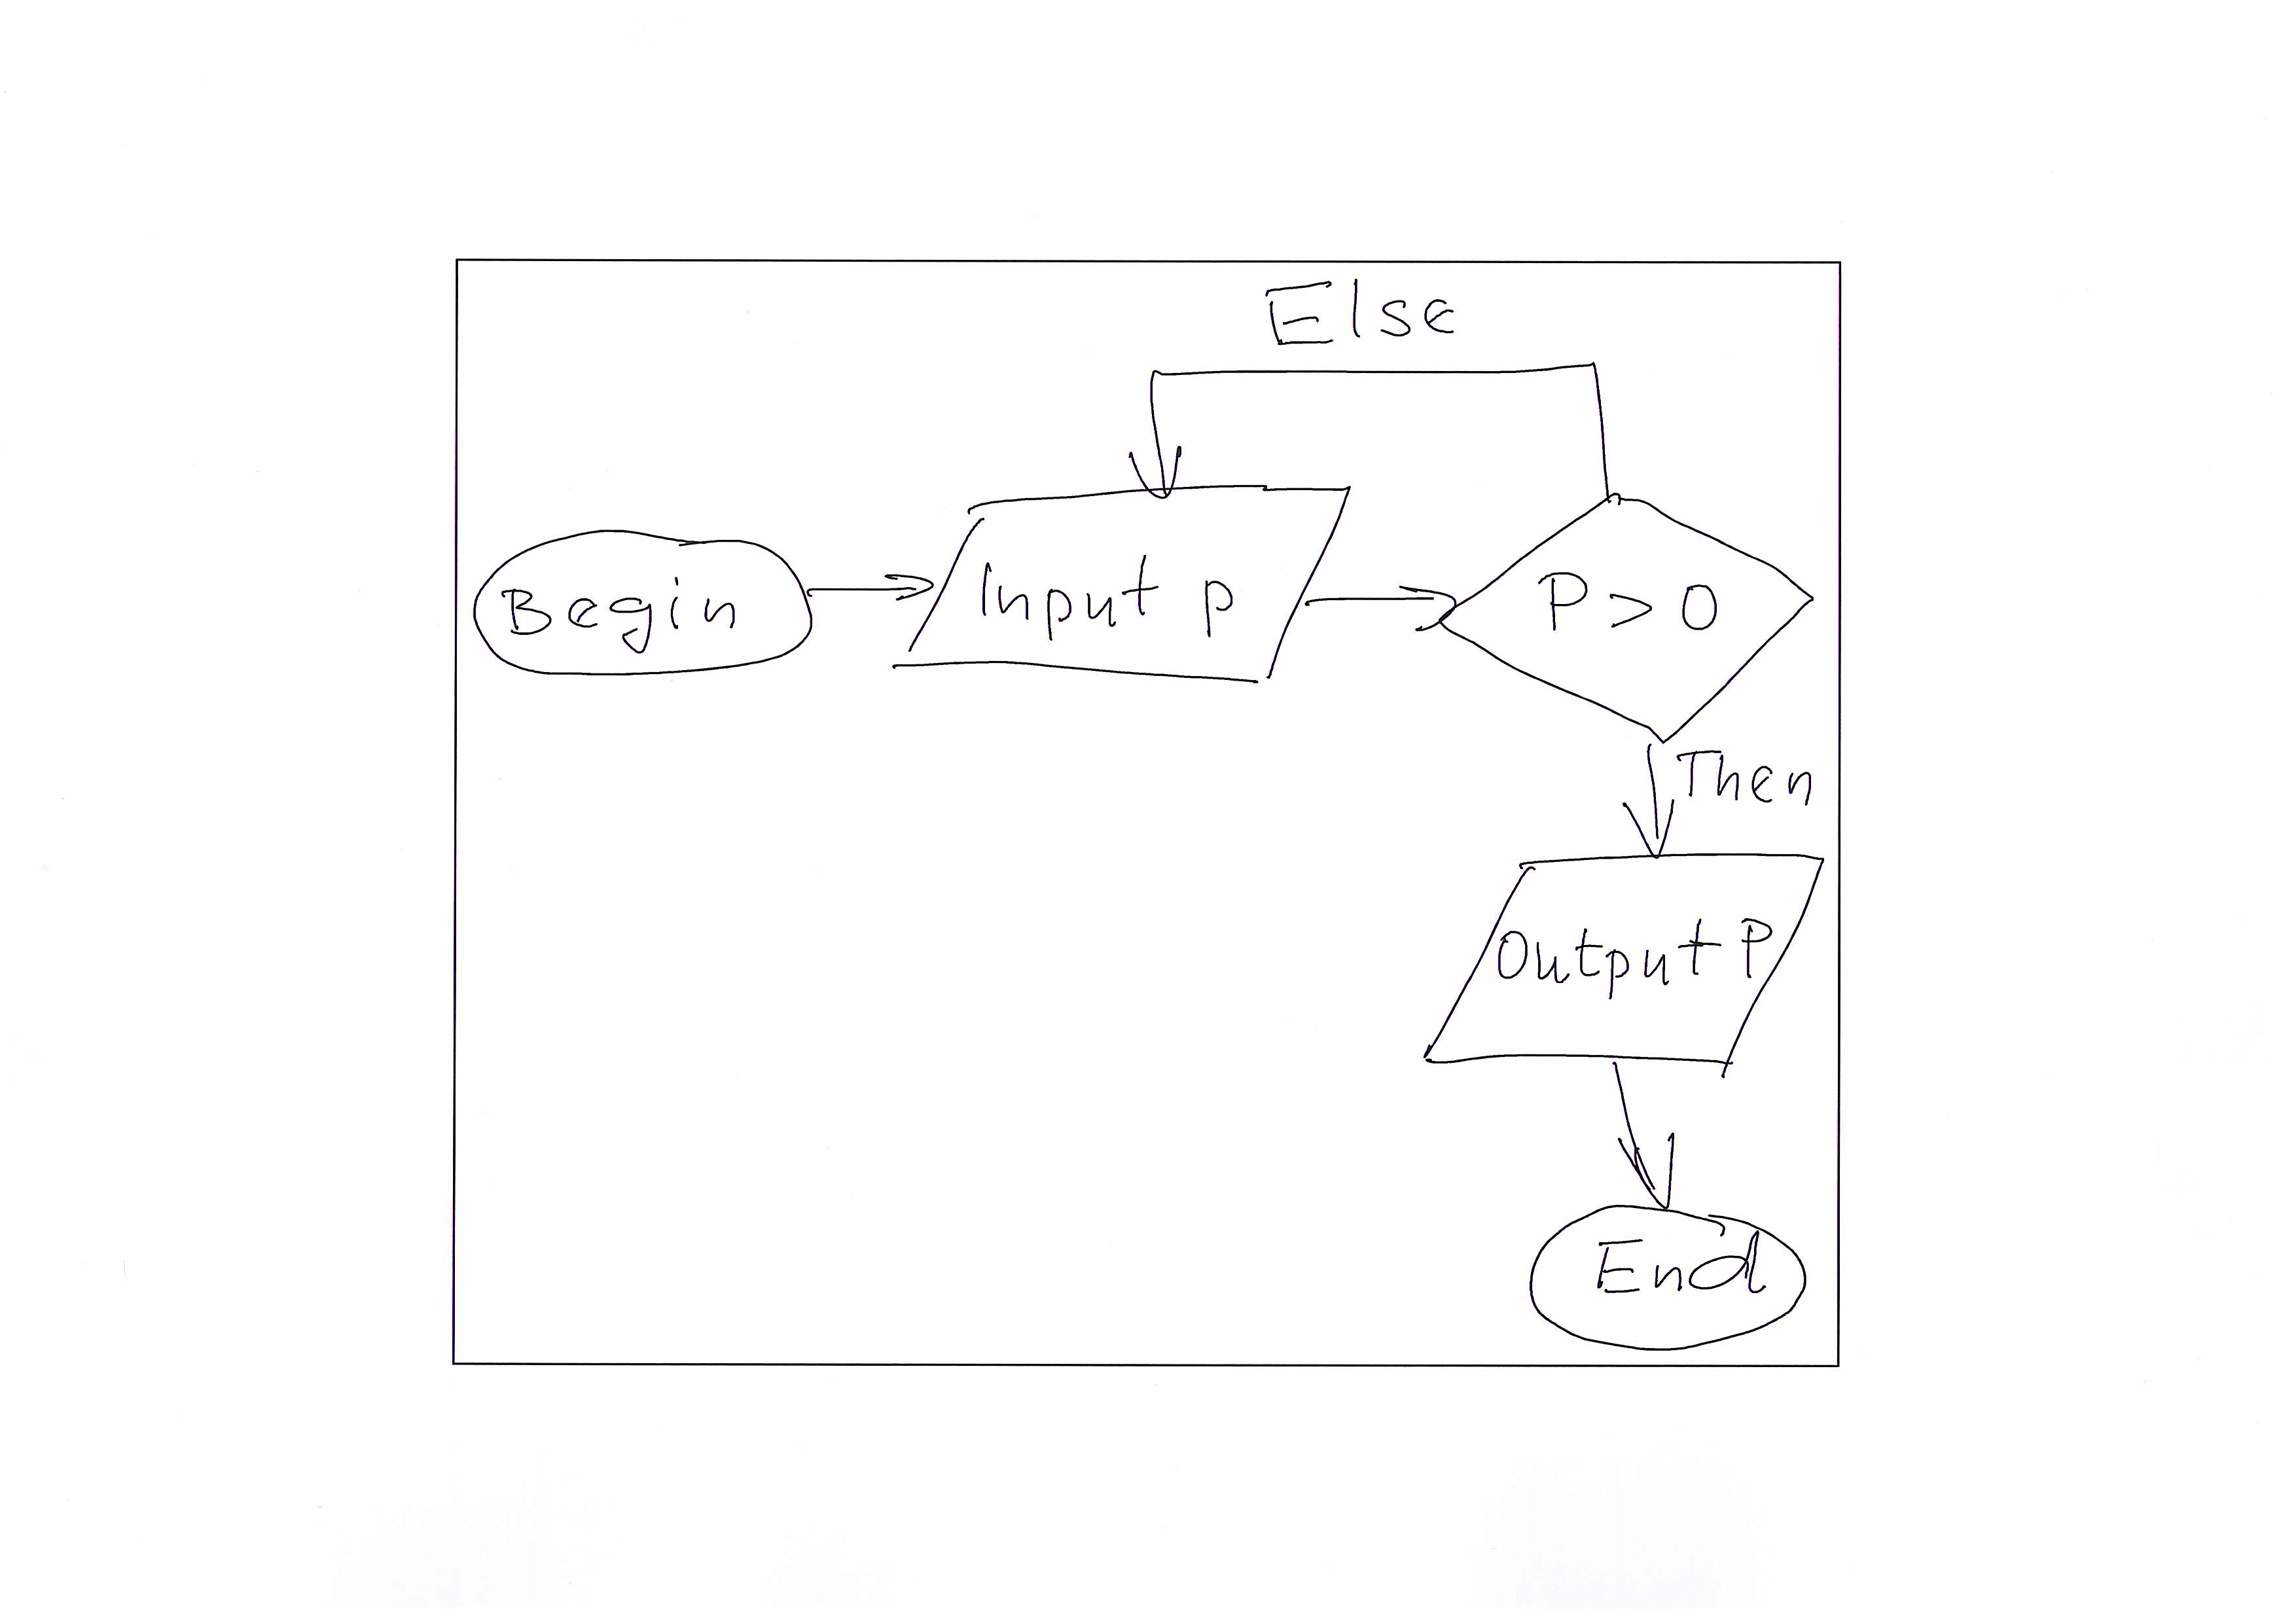 Else
Begin
Input p
P > 0
Then
Output P
End